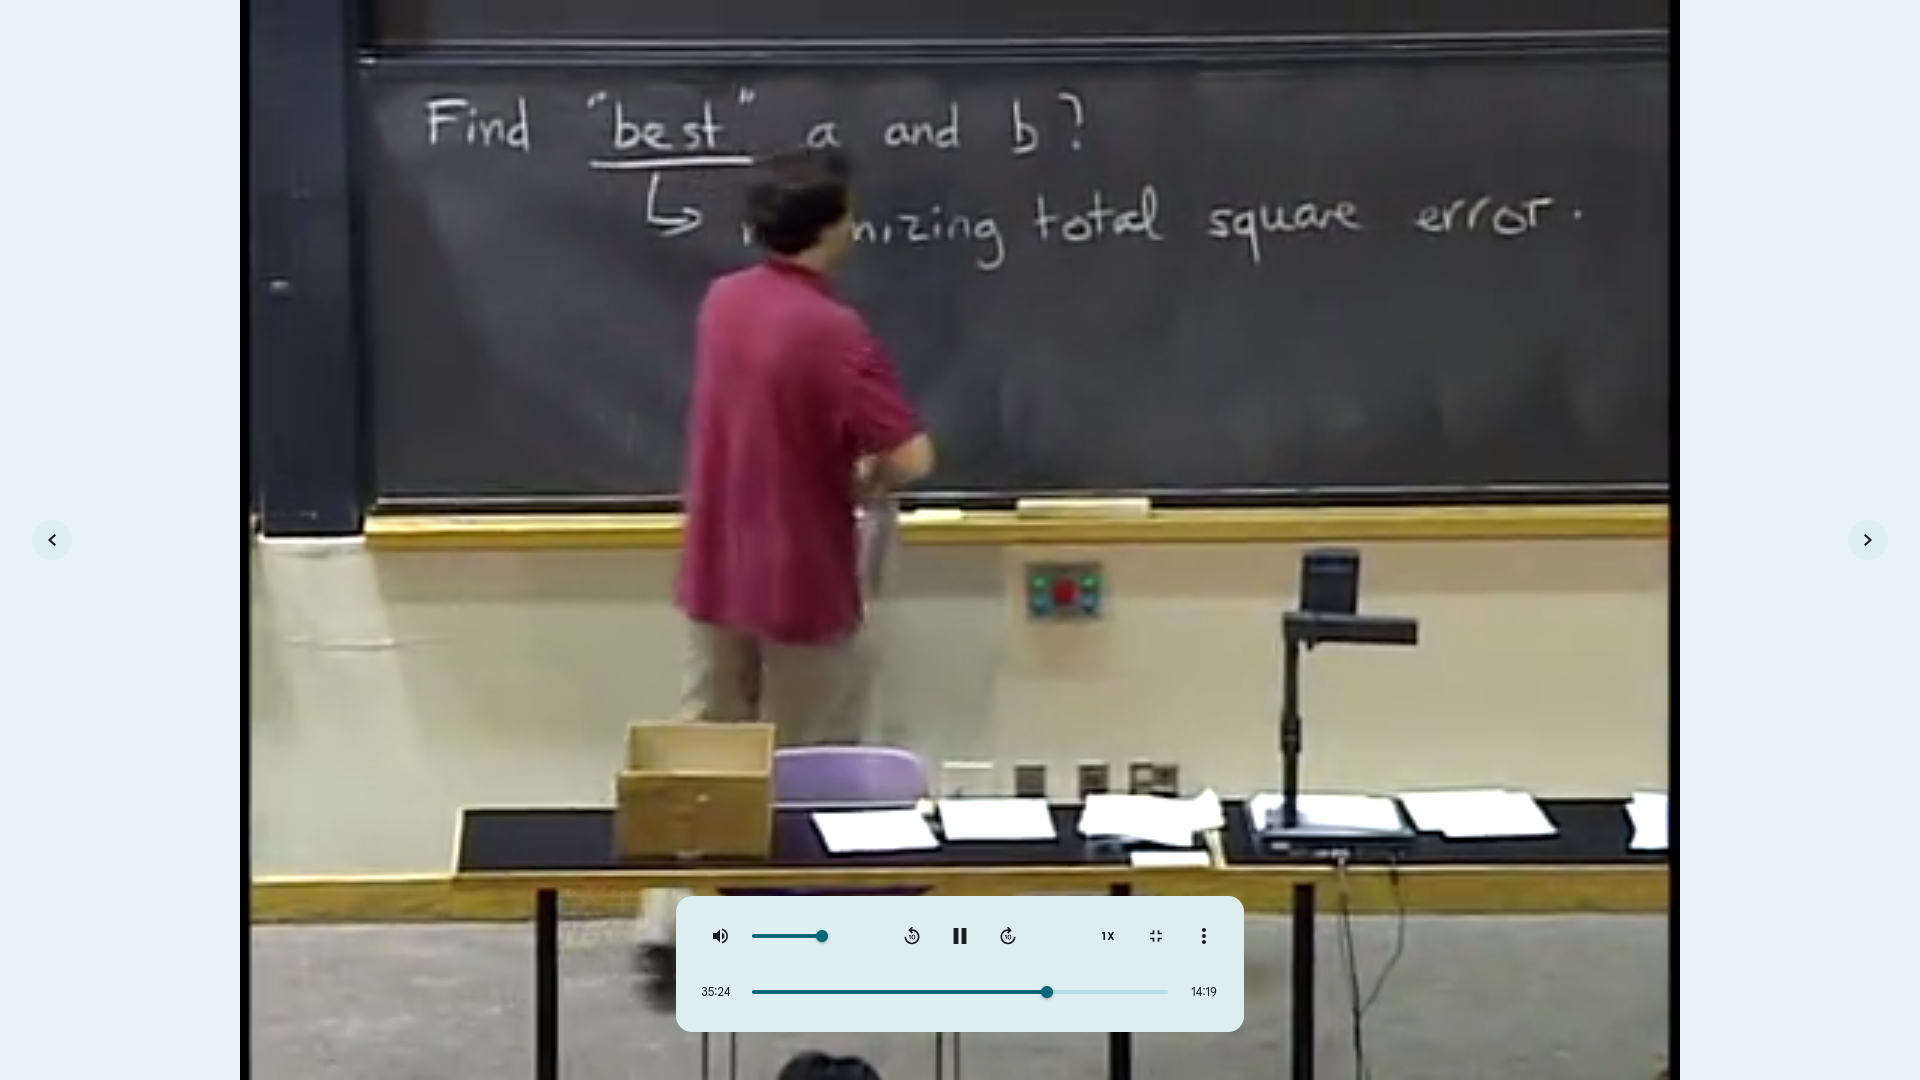 Find "best" a and b?
↳ nizing total square error.
10 10 1X
35:24 14:19